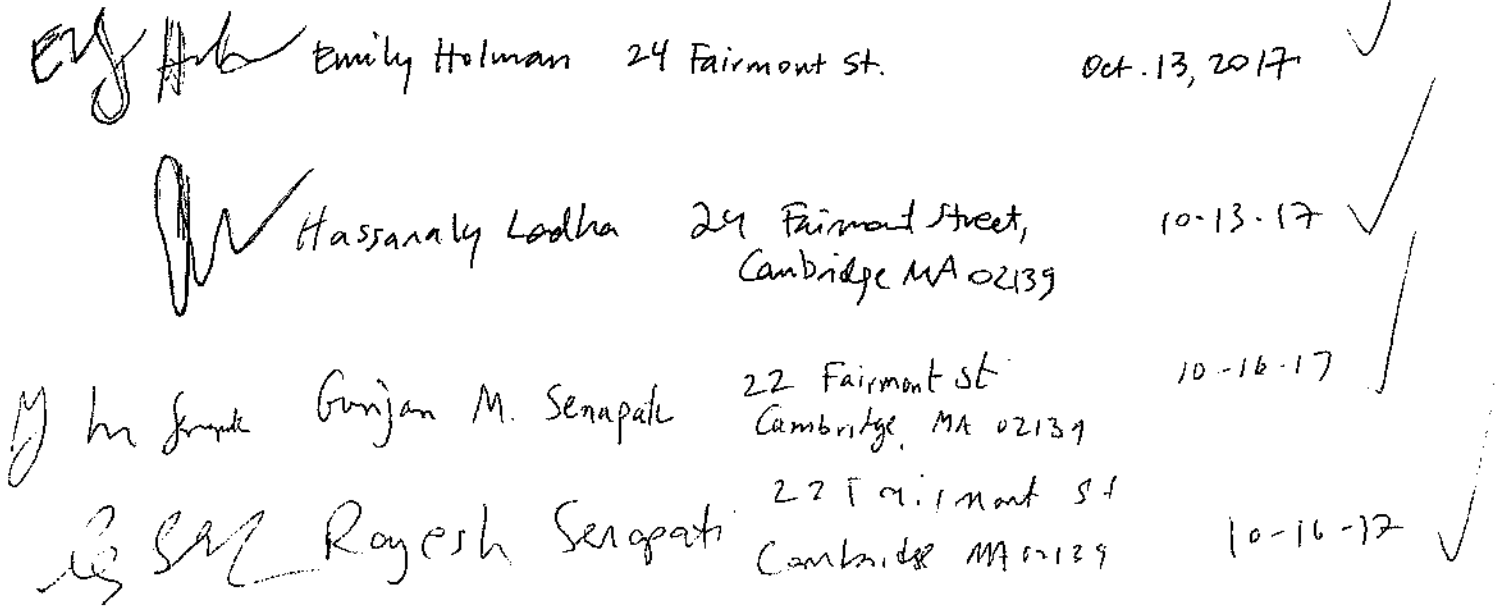 Emily Holman 24 Fairmont St. Oct. 13, 2017
Hassanaly Ladha 24 Fairmont Street, 10-13-17
Cambridge MA 02139
Gunjan M. Senapati 22 Fairmont St 10-16-17
Cambridge, MA 02139
Rajesh Senapati 22 Fairmont St 10-16-17
Cambridge MA 02139